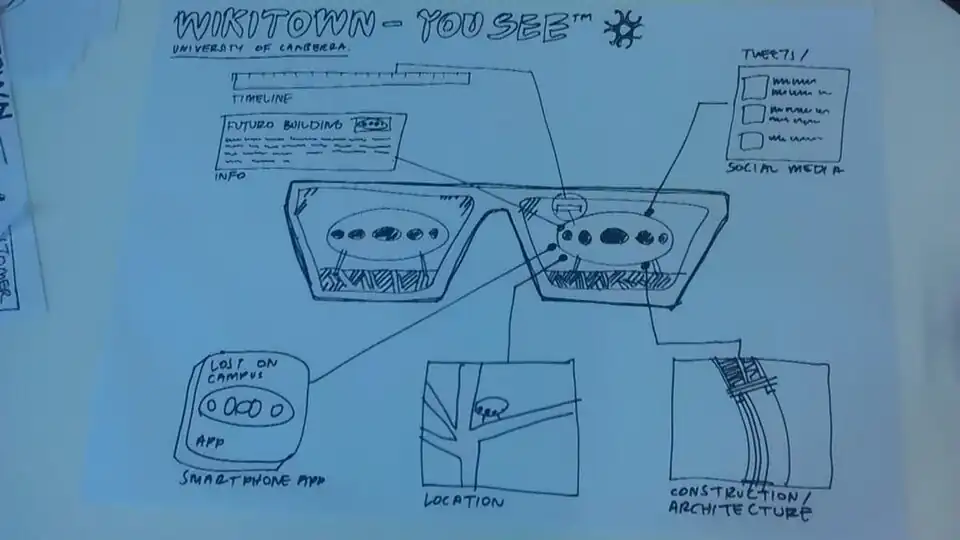 WIKITOWN - YOU SEE™
UNIVERSITY OF CANBERRA
TIMELINE
FUTURO BUILDING
INFO
TWEETS/
SOCIAL MEDIA
LOST ON
CAMPUS
APP
SMARTPHONE APP
LOCATION
CONSTRUCTION/
ARCHITECTURE